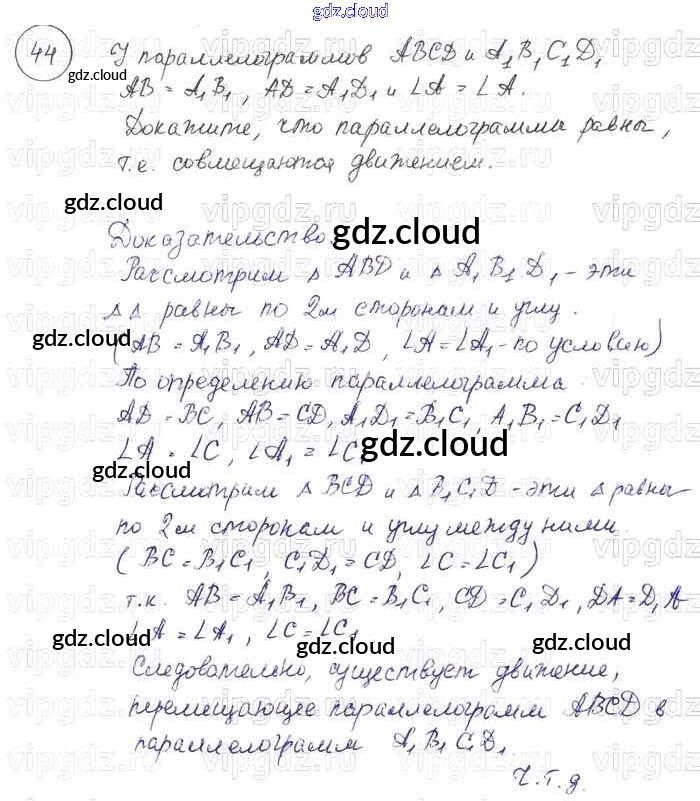 gdz.cloud
44 У параллелограммов ABCD и A₁B₁C₁D₁
gdz.cloud
AB = A₁B₁, AD = A₁D₁ и ∠A = ∠A.
Докажите, что параллелограммы равны,
т.е. совмещаются движением.
gdz.cloud
gdz.cloud
Доказательство.
gdz.cloud
Рассмотрим △ ABD и △ A₁B₁D₁ - эти
△△ равны по 2м сторонам и углу.
gdz.cloud
(AB = A₁B₁, AD = A₁D, ∠A = ∠A₁ - по условию)
По определению параллелограмма
AD = BC, AB = CD, A₁D₁ = B₁C₁, A₁B₁ = C₁D₁
∠A = ∠C, ∠A₁ = ∠C
gdz.cloud
gdz.cloud
Рассмотрим △ BCD и △ B₁C₁D - эти △ равны
по 2м сторонам и углу между ними.
(BC = B₁C₁, C₁D₁ = CD, ∠C = ∠C₁)
gdz.cloud
gdz.cloud
т.к. AB = A₁B₁, BC = B₁C₁, CD = C₁D₁, DA = D₁A
∠A = ∠A₁, ∠C = ∠C₁
gdz.cloud
gdz.cloud
Следовательно, существует движение,
перемещающее параллелограмм ABCD в
параллелограмм A₁B₁C₁D₁.
gdz.cloud
gdz.cloud
Ч.т.д.